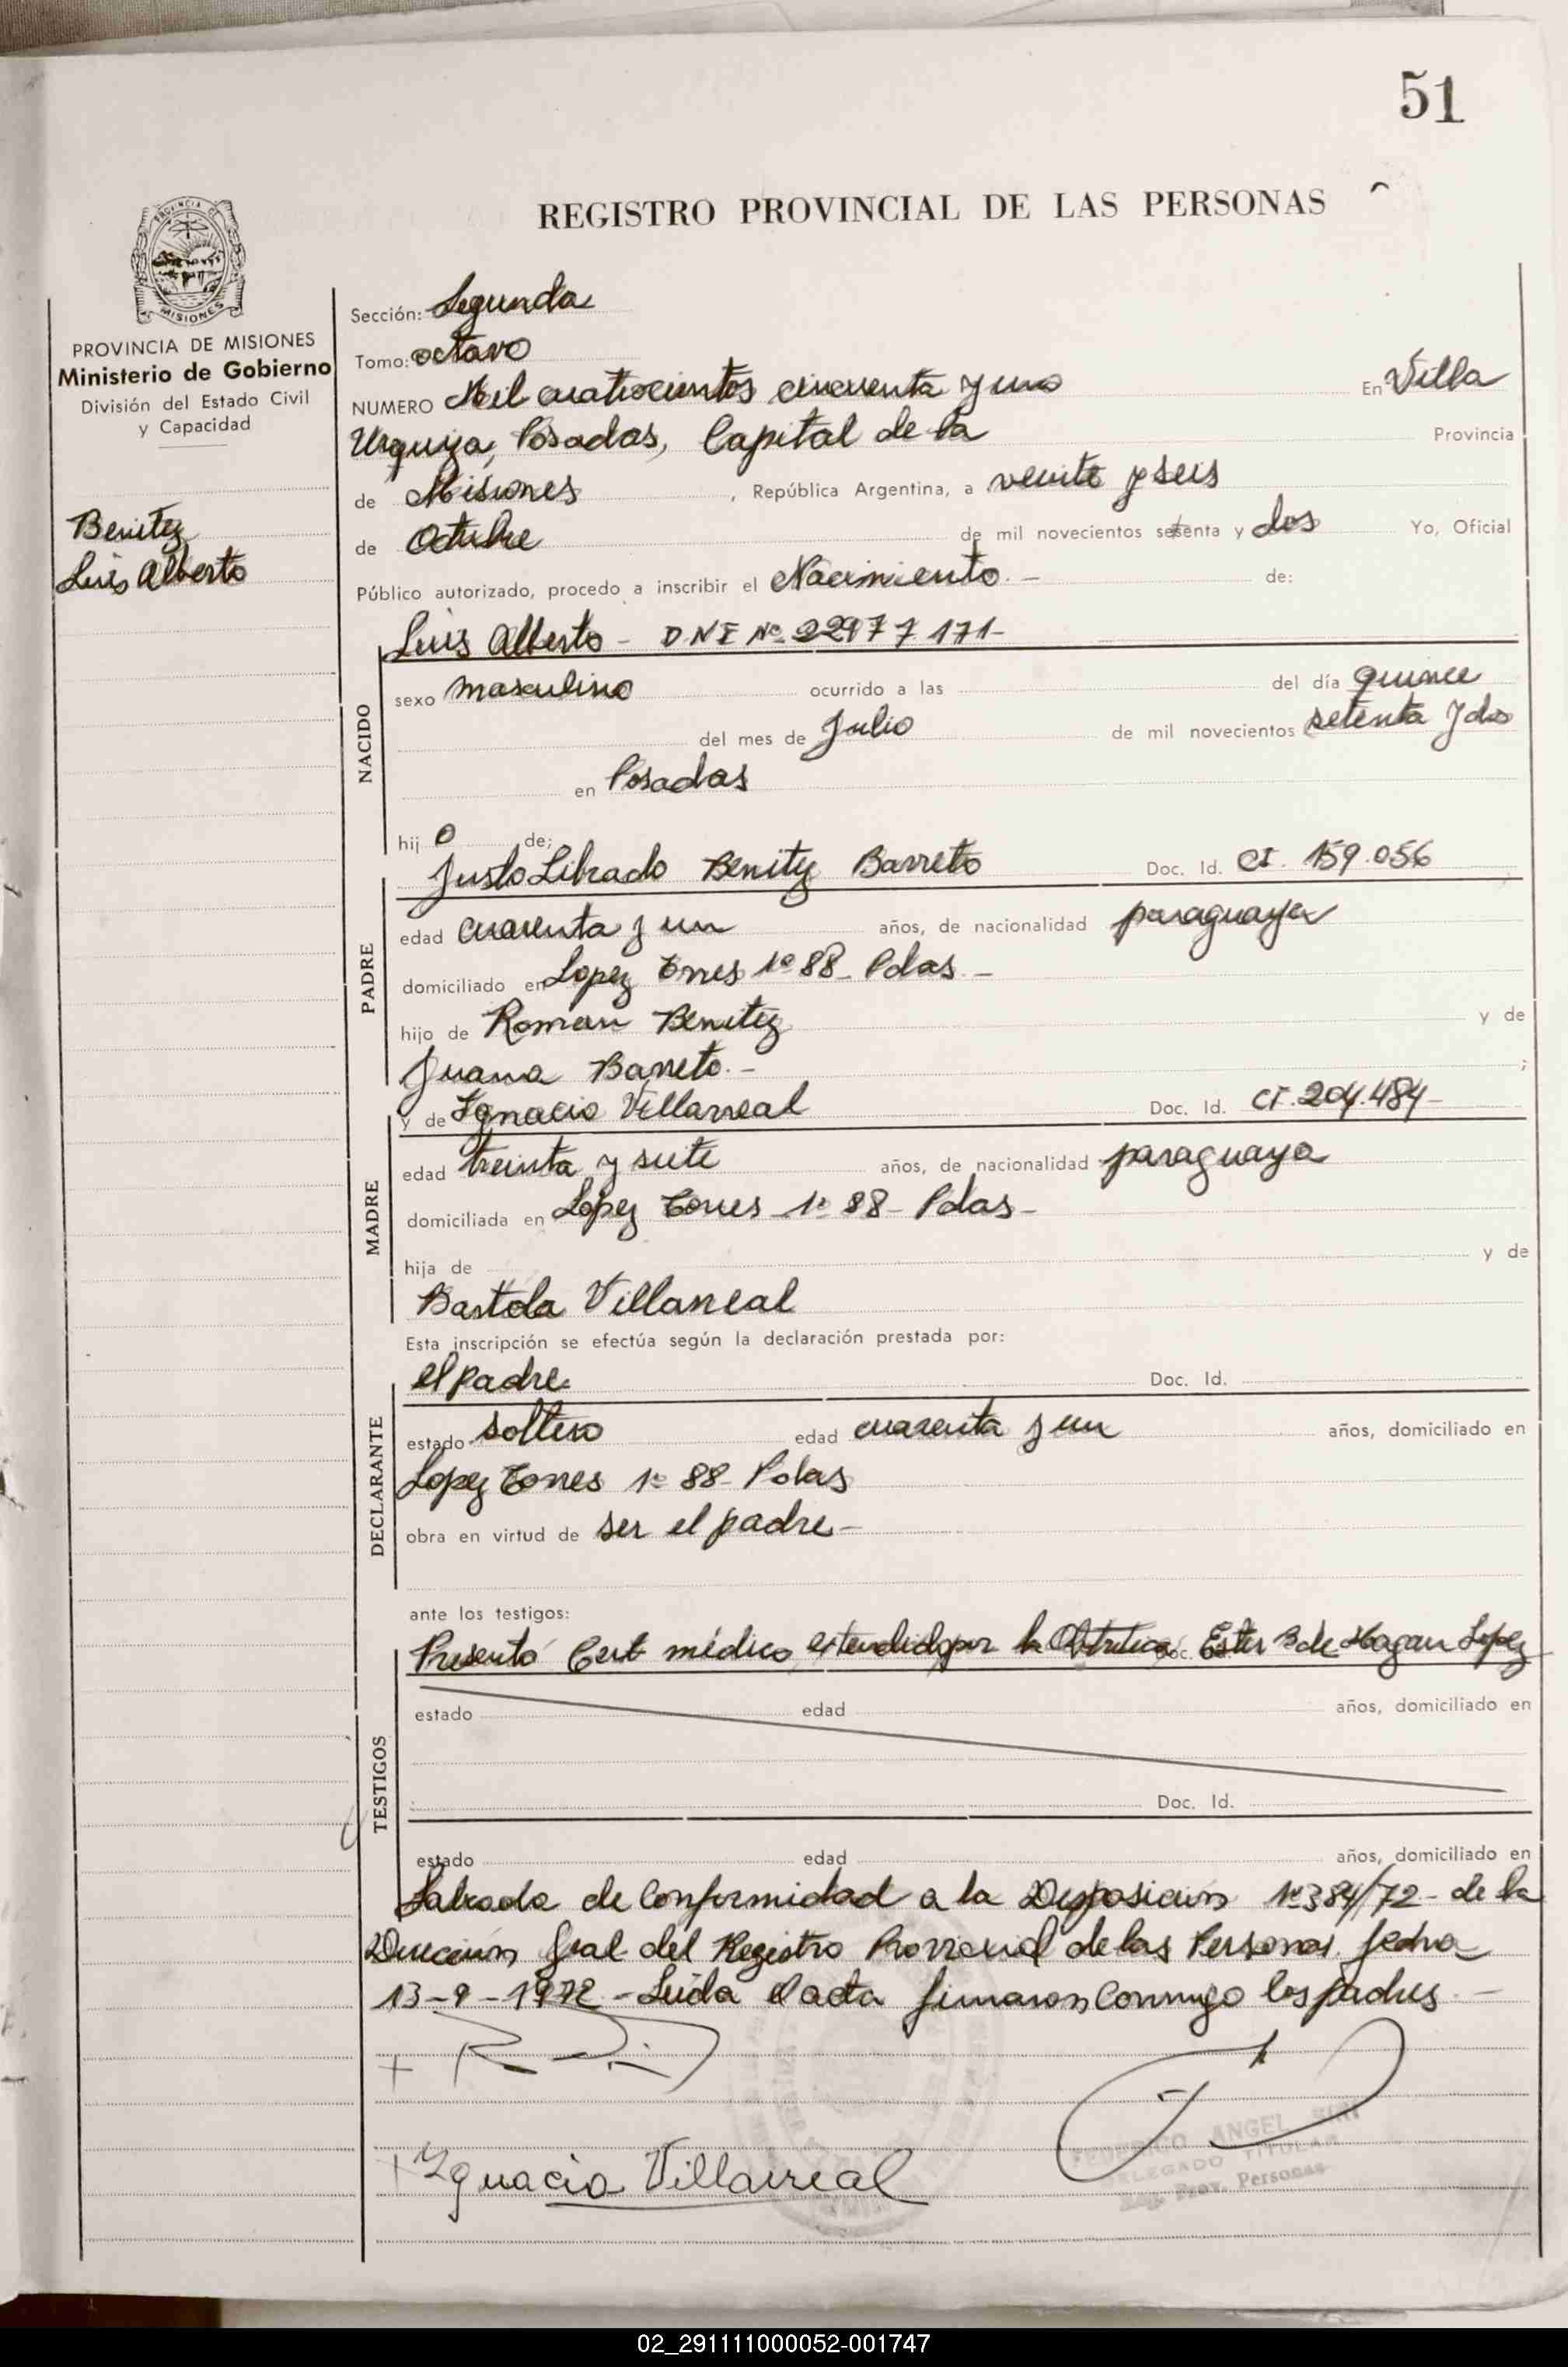 51
REGISTRO PROVINCIAL DE LAS PERSONAS
PROVINCIA DE MISIONES
Ministerio de Gobierno
División del Estado Civil
y Capacidad
Benitez
Luis Alberto
Sección: Segunda
Tomo: octavo
NUMERO Mil cuatrocientos cincuenta y uno En Villa
Urquiza, Posadas, Capital de la Provincia
de Misiones, República Argentina, a veinte y seis
de Octubre de mil novecientos setenta y dos Yo, Oficial
Público autorizado, procedo a inscribir el Nacimiento.- de:
Luis Alberto - DNI Nº 22977171-
NACIDO
sexo masculino ocurrido a las del día quince
del mes de Julio de mil novecientos setenta y dos
en Posadas
hij o de:
Justo Librado Benitez Barreto Doc. Id. CI. 159.056
PADRE
edad cuarenta y un años, de nacionalidad paraguaya
domiciliado en Lopez Torres 1º 88- Pdas.-
hijo de Roman Benitez y de
Juana Barreto.- ;
y de Ignacia Villarreal Doc. Id. CI. 204.484-
MADRE
edad treinta y siete años, de nacionalidad paraguaya
domiciliada en Lopez Torres 1º 88- Pdas-
hija de y de
Bartola Villarreal
Esta inscripción se efectúa según la declaración prestada por:
el padre. Doc. Id.
DECLARANTE
estado soltero edad cuarenta y un años, domiciliado en
Lopez Torres 1º 88- Pdas
obra en virtud de ser el padre-
ante los testigos:
Presentó Cert médico extendido por la Obstetrica Ester B de Hagan Lopez
TESTIGOS
estado edad años, domiciliado en
Doc. Id.
estado edad años, domiciliado en
Labrada de conformidad a la Disposicion 1º 384/72- de la
Direccion Gral del Registro Provincial de las Personas fecha
13-9-1972.- Leida el acta firmaron conmigo los padres.-
Ygnacia Villarreal
FEDERICO ANGEL
DELEGADO TITULAR
Reg. Prov. Personas
02_291111000052-001747